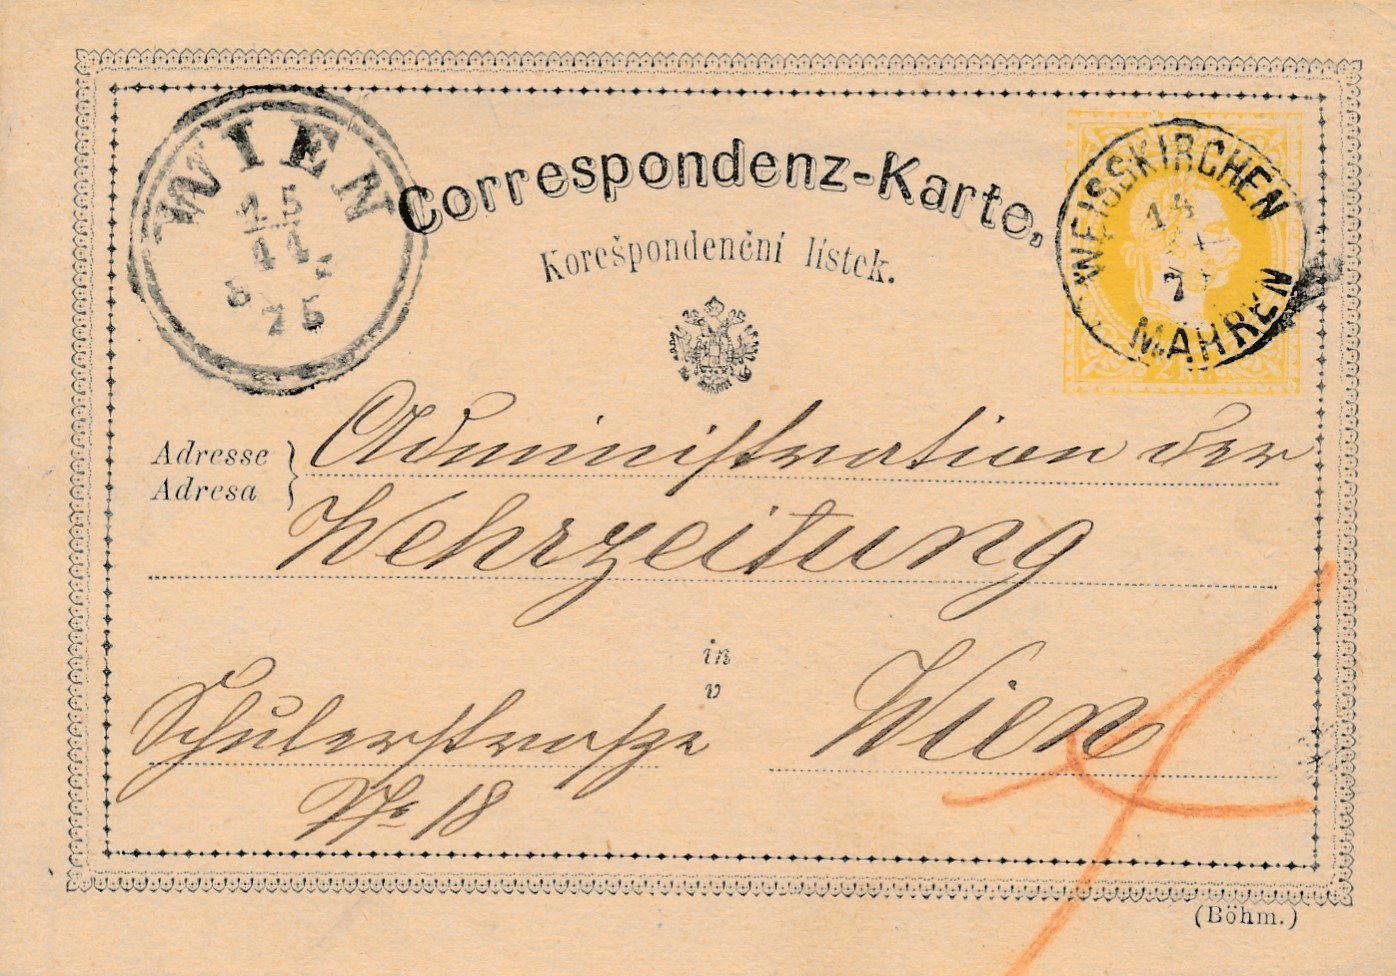 WIEN
15
11
75
Correspondenz-Karte,
Korešpondenční lístek.
WEISSKIRCHEN
MÄHREN
Adresse
Adresa
Administration der
Wehrzeitung
in
v
Wien
Schulerstraße
No 18
(Böhm.)